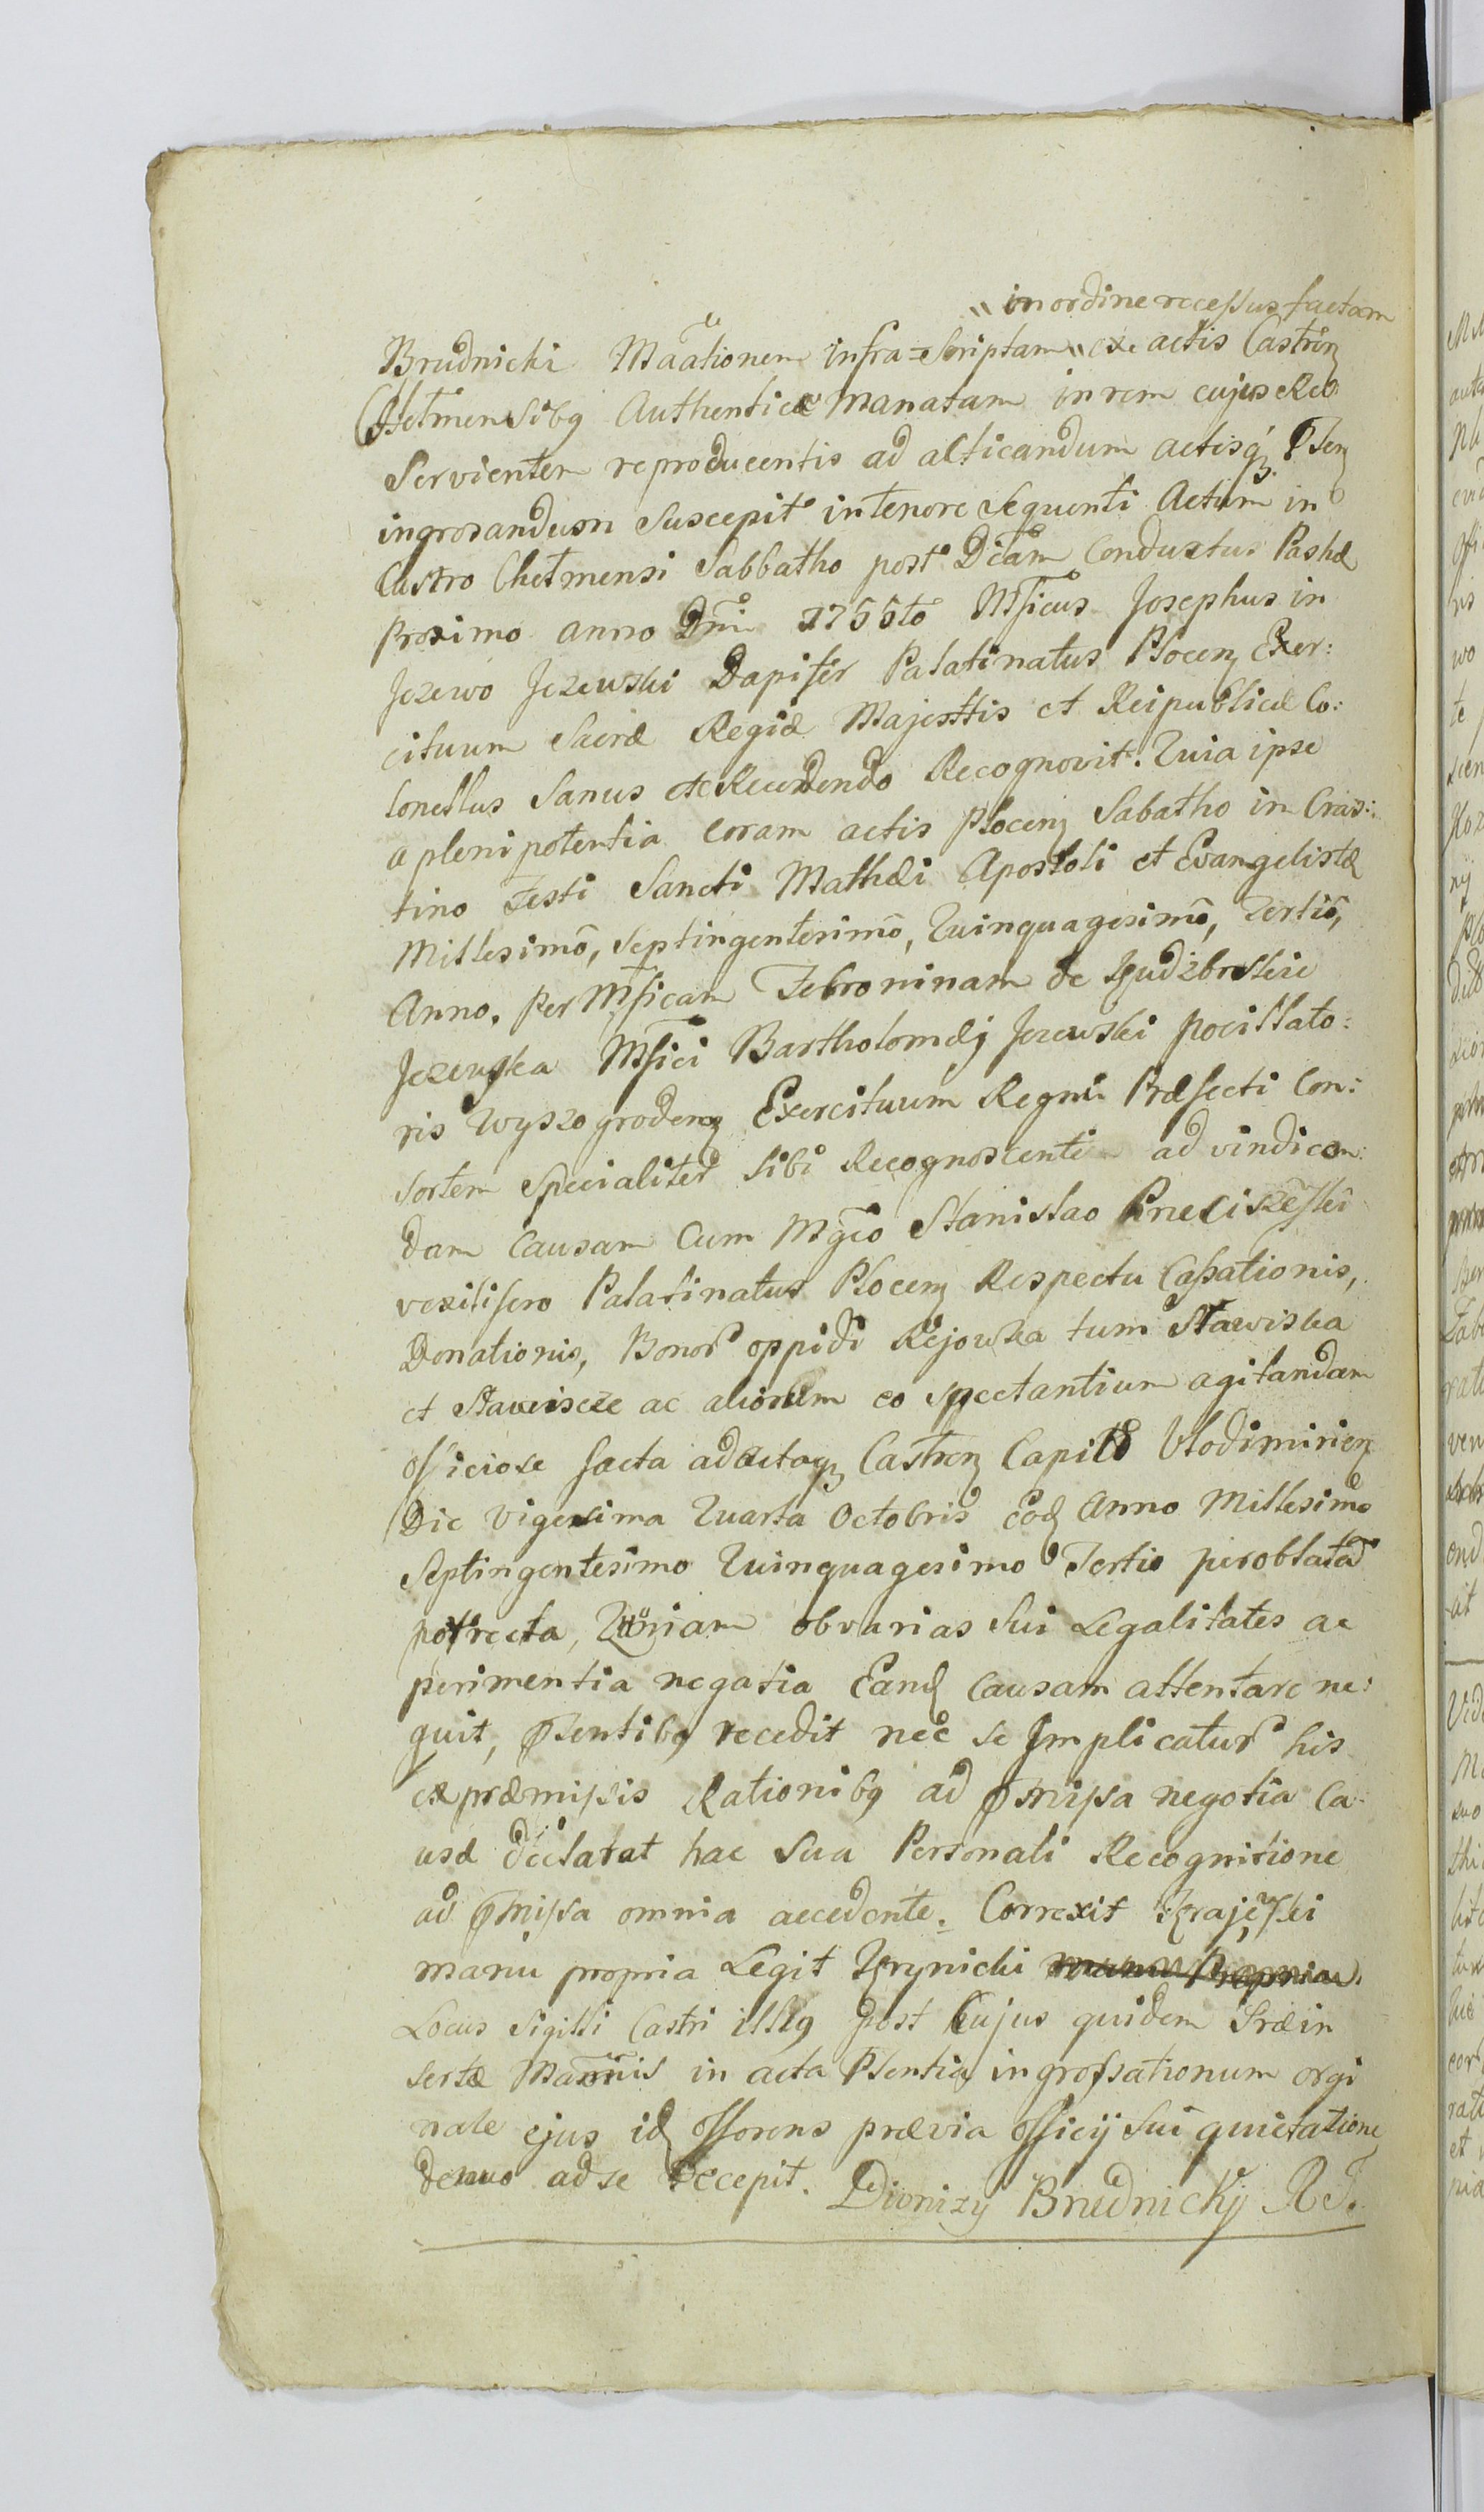 " in ordine recessus factam
Brudnicki Maãtionem infra=Scriptam " exe actis Castren
Chełmensibq Authenticæ Manatam in rem cujus Reo
Servientem reproducentis ad acticandum actisq Psen
ingrosandum Suscepit in tenore Sequenti Actum in
Castro Chełmensi Sabbatho post Dicam Conductus Pashæ
proximo anno Dni 1755to Mficus Josephus in
Jezewo Jezewski Dapifer Palatinatus Plocen Exer:
cituum Sacræ Regiæ Majesttis et Reipublicæ Co:
lonellus Sanus etc Recedendo Recognovit. Quia ipse
a plenipotentia coram actis Plocen Sabatho in Cras:
tino Festi Sancti Mathæi Apostoli et Evangelistæ
Millesimõ, Septingentesimõ, Quinquagesimõ, Tertiõ,
Anno, per Mficam Febroninam de Kudzbrskie
Jezewska Mfici Bartholomæj Jezewski Pocillato:
ris Wyszogroden Exercituum Regni Præfecti Con:
sortem Specialiter Sibi Recognoscenti ad vindican:
dam Causam Cum Mgco Stanislao Kneciszeski
vexilifero Palatinatus Plocen Respectu Cassationis,
Donationis, Bonor oppidi Rejowka tum Stawiska
et Stawiscze ac aliorum eo spectantium agitandam
officiose facta adactaq Castren Capitl Vlodimirien
Die Vigesima Quarta Octobris eod Anno Millesimo
Septingentesimo Quinquagesimo Tertio per oblatã
porrecta, Quoniam ob varias Sui Legalitates ac
perimentia negatia Eand Causam attentare ne:
quit, Psentibq recedit nec se Implicatur his
ex præmissis Rationibq ad Pmissa negotia Ca:
usæ declarat hac Sua Personali Recognitione
ad Pmissa omnia accedente. Correxit Krajeski
manu propria Legit Krynicki manu Propria.
Locus Sigilli Castri illiq post Cujus quidem Præin
sertæ Maõnis in acta Psentia ingrossationum orgi
nale ejus id offerens prævia officij Sui quietatione
denuo ad se recepit. Dionizy Brudnicky RJ.